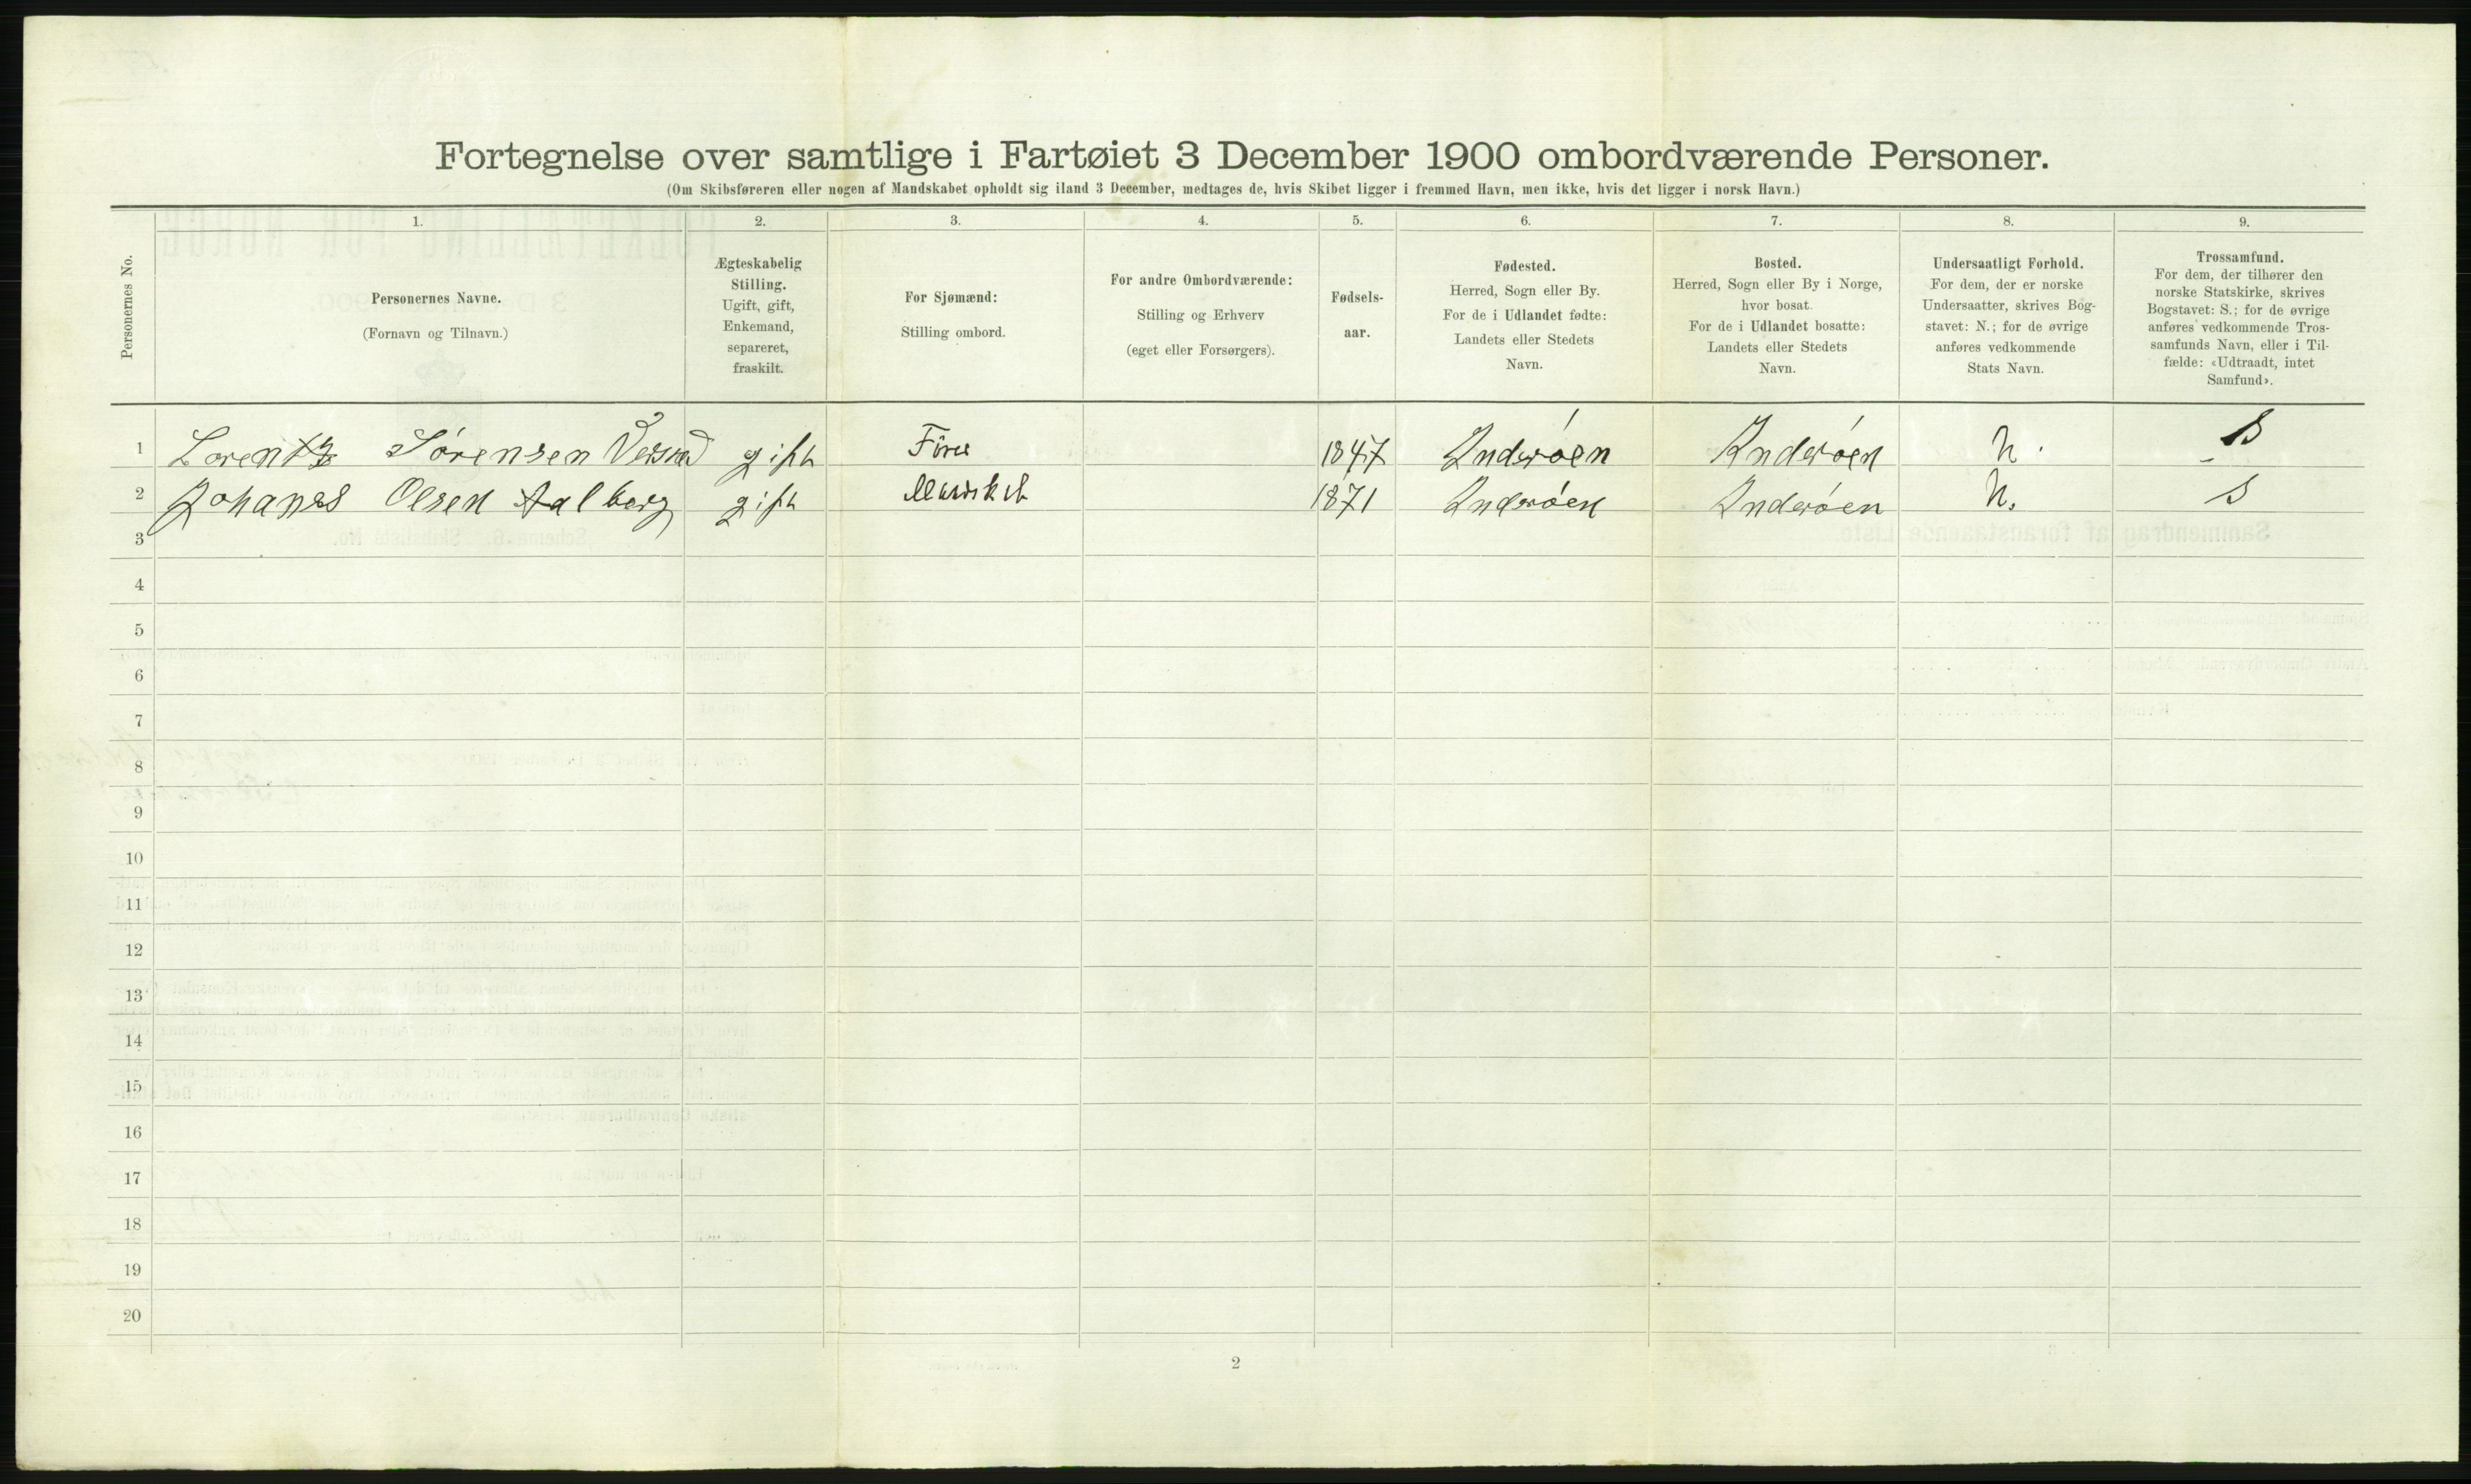 Fortegnelse over samtlige i Fartøiet 3 December 1900 ombordværende Personer.
(Om Skibsføreren eller nogen af Mandskabet opholdt sig iland 3 December, medtages de, hvis Skibet ligger i fremmed Havn, men ikke, hvis det ligger i norsk Havn.)
Personernes No.
1.
Personernes Navne.
(Fornavn og Tilnavn.)
2.
Ægteskabelig
Stilling.
Ugift, gift,
Enkemand,
separeret,
fraskilt.
3.
For Sjømænd:
Stilling ombord.
4.
For andre Ombordværende:
Stilling og Erhverv
(eget eller Forsørgers).
5.
Fødsels-
aar.
6.
Fødested.
Herred, Sogn eller By.
For de i Udlandet fødte:
Landets eller Stedets
Navn.
7.
Bosted.
Herred, Sogn eller By i Norge,
hvor bosat.
For de i Udlandet bosatte:
Landets eller Stedets
Navn.
8.
Undersaatligt Forhold.
For dem, der er norske
Undersaatter, skrives Bog-
stavet: N.; for de øvrige
anføres vedkommende
Stats Navn.
9.
Trossamfund.
For dem, der tilhører den
norske Statskirke, skrives
Bogstavet: S.; for de øvrige
anføres vedkommende Tros-
samfunds Navn, eller i Til-
fælde: «Udtraadt, intet
Samfund».
1 Lorentz Sörensen gift 1847 Inderöen Inderöen N. S
2 Johanes Olsen Aalberg gift 1871 Inderöen Inderöen N. S
3
4
5
6
7
8
9
10
11
12
13
14
15
16
17
18
19
20
2